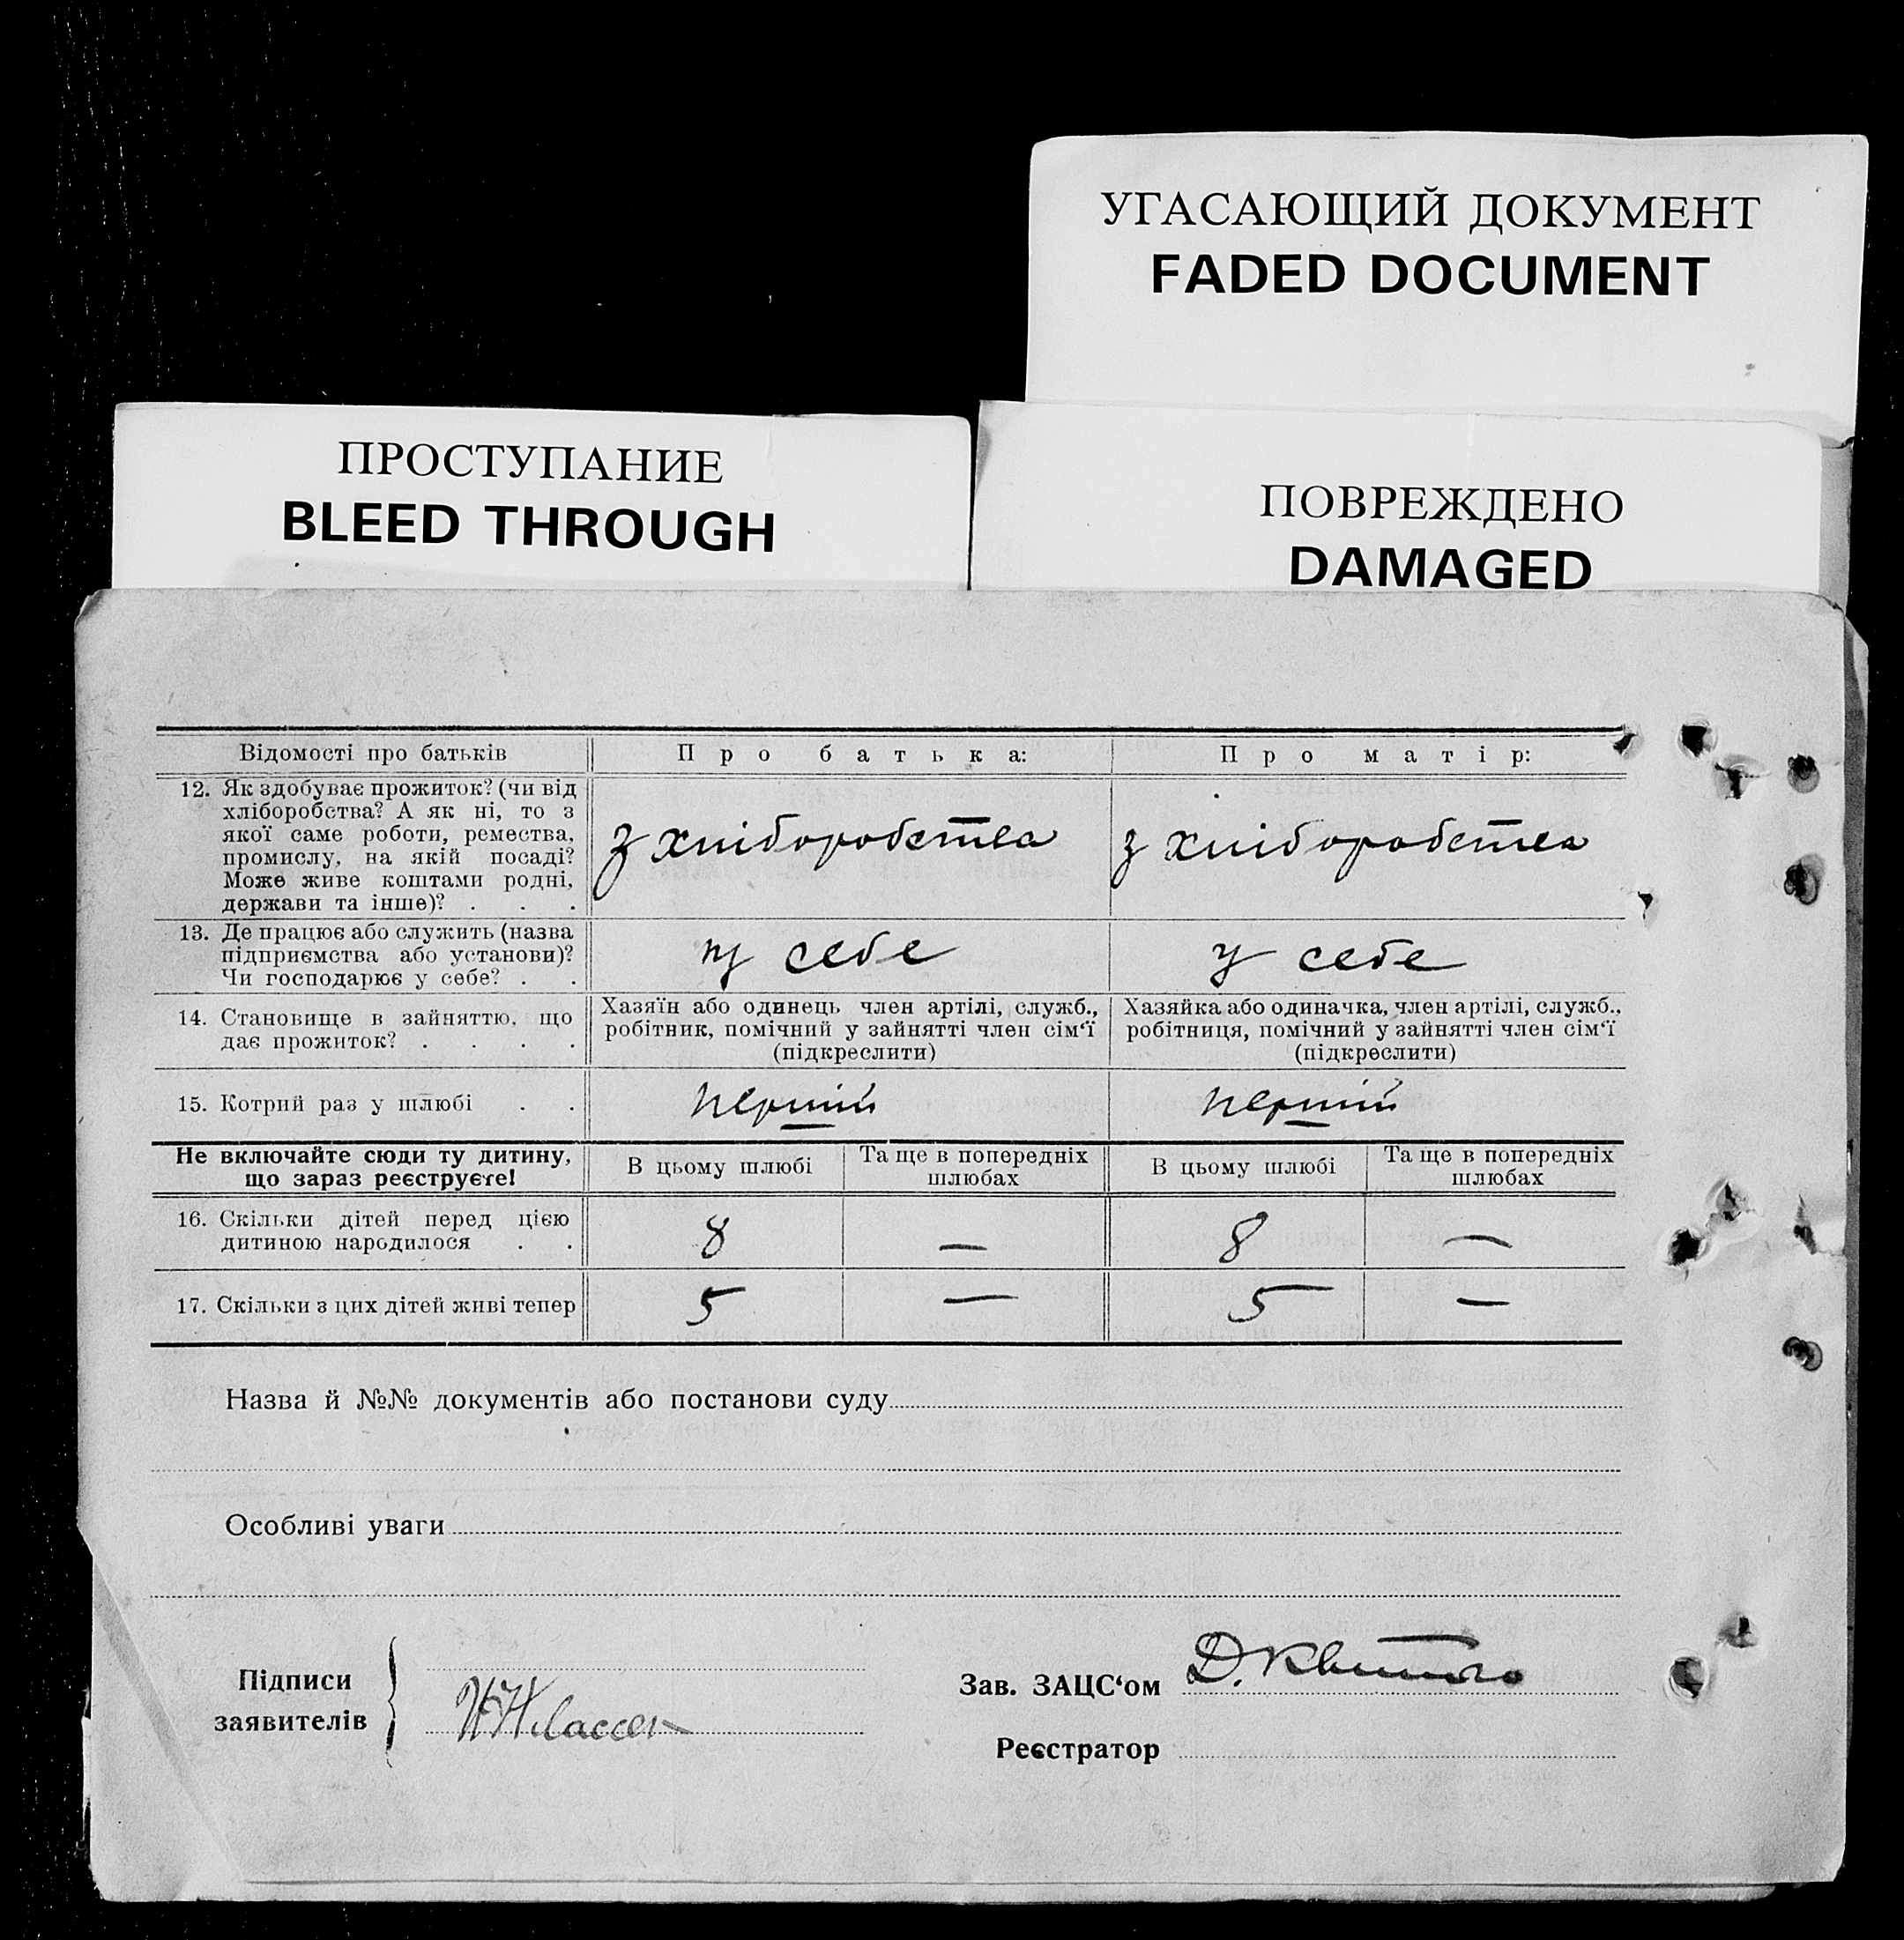 УГАСАЮЩИЙ ДОКУМЕНТ
FADED DOCUMENT
ПРОСТУПАНИЕ
BLEED THROUGH
ПОВРЕЖДЕНО
DAMAGED
Відомості про батьків
Про батька:
Про матір:
12. Як здобуває прожиток? (чи від
хліборобства? А як ні, то з
якої саме роботи, ремества,
промислу, на якій посаді?
Може живе коштами родні,
держави та інше)? . . .
з хліборобства
з хліборобства
13. Де працює або служить (назва
підприємства або установи)?
Чи господарює у себе? . .
у себе
у себе
14. Становище в зайняттю, що
дає прожиток? . . . .
Хазяїн або одинець член артілі, служб.,
робітник, помічний у зайнятті член сім‘ї
(підкреслити)
Хазяйка або одиначка, член артілі, служб.,
робітниця, помічний у зайнятті член сім‘ї
(підкреслити)
15. Котрий раз у шлюбі . .
перший
перший
Не включайте сюди ту дитину,
що зараз реєструєте!
В цьому шлюбі
Та ще в попередніх
шлюбах
В цьому шлюбі
Та ще в попередніх
шлюбах
16. Скільки дітей перед цією
дитиною народилося . .
8
—
8
—
17. Скільки з цих дітей живі тепер
5
—
5
—
Назва й №№ документів або постанови суду
Особливі уваги
Підписи
заявителів
Зав. ЗАЦС‘ом
Реєстратор